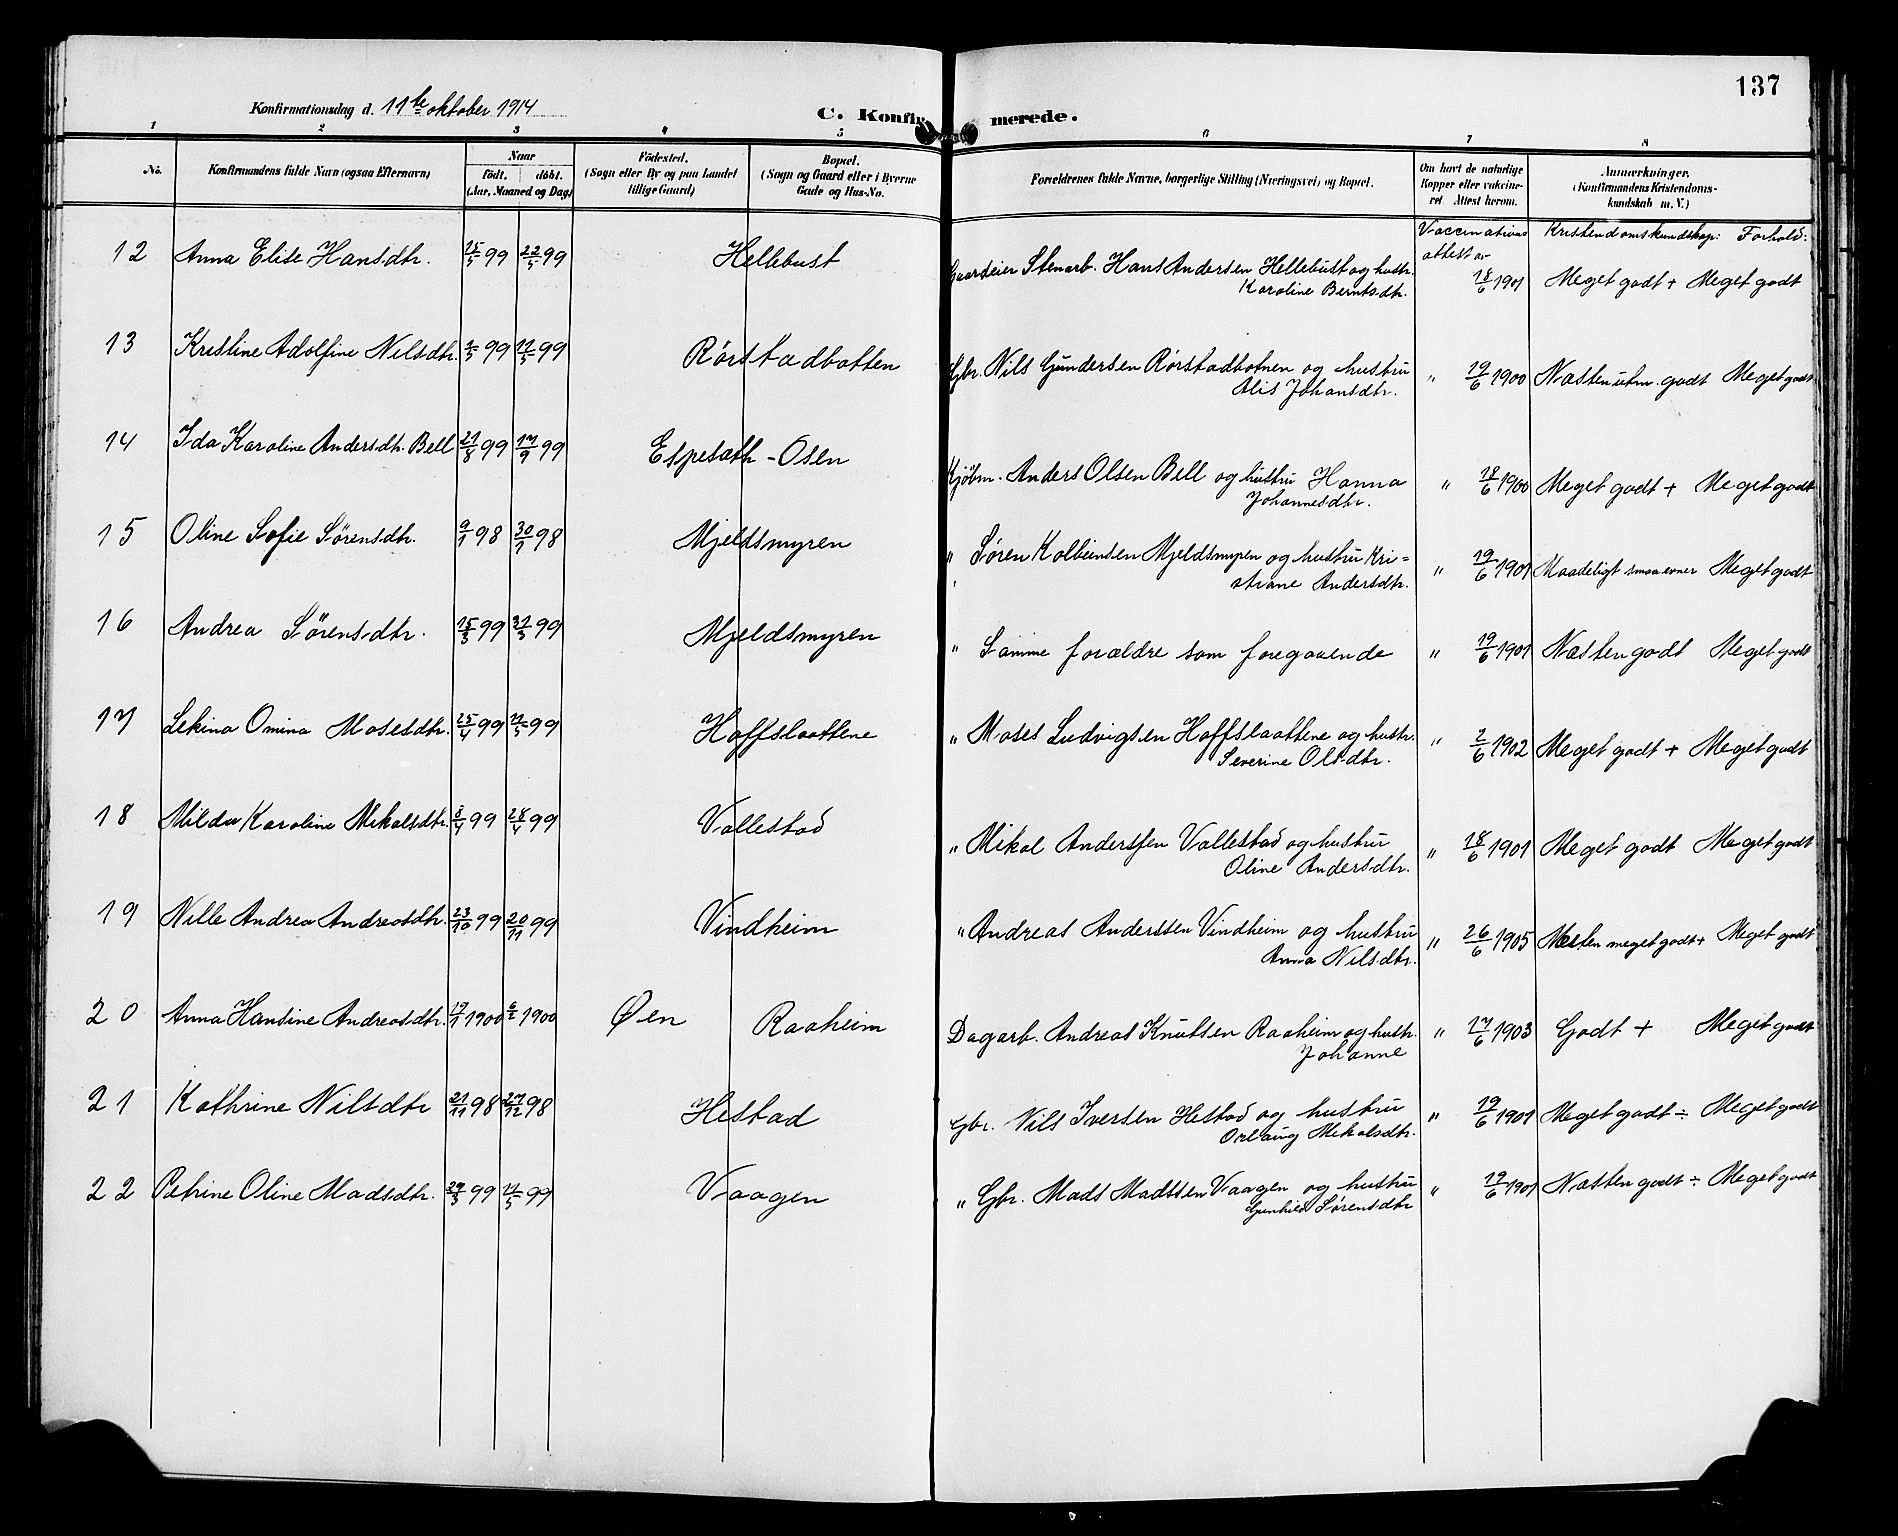 137
Konfirmationsdag d. 11te oktober 1914
C. Konfirmerede.
1 2 3 4 5 6 7 8
No. Konfirmandens fulde Navn (ogsaa Efternavn) Naar født. døbt. (Aar, Maaned og Dag) Fødested. (Sogn eller By og paa Landet tillige Gaard) Bopæl. (Sogn og Gaard eller i Byerne Gade og Hus-No. Forældrenes fulde Navne, borgerlige Stilling (Næringsvei) og Bopæl. Om havt de naturlige Kopper eller vakcineret Attest herom. Anmærkninger. (Konfirmandens Kristendomskundskab m. V.)
Vaccinations attest av Kristendomskundskap: Forhold:
12 Anna Elise Hansdtr. 15/5 99 22/5 99 Hellebust Gaardeier Stenarb. Hans Andersen Hellebust og hustr. 18/6 1901 Meget godt + Meget godt
Karoline Berntsdtr.
13 Kristine Adolfine Nilsdtr. 2/5 99 22/5 99 Rørstadbotten Gbr. Nils Gundersen Rørstadbotnen og hustru " 19/6 1900 Næsten utm. godt Meget godt
Alis Johansdtr.
14 Ida Karoline Andersdtr. Bell 21/8 99 17/9 99 Espesæth - Osen Kjøbm. Anders Olsen Bell og hustru Hanna " 18/6 1900 Meget godt + Meget godt
Johannesdtr.
15 Oline Sofie Sørensdtr. 9/1 98 30/1 98 Mjeldsmyren " Søren Kolbeinsen Mjeldsmyren og hustru Kri= " 19/6 1901 Maadeligt smaa evner Meget godt
" stiane Andersdtr.
16 Andrea Sørensdtr. 15/3 99 31/3 99 Mjeldsmyren " Samme forældre som foregaaende " 19/6 1901 Næsten godt Meget godt
17 Lekina Omina Mosesdtr. 25/4 99 21/5 99 Hoffslaattene " Moses Ludvigsen Hoffslaattene og hustr. " 2/6 1902 Meget godt + Meget godt
Severine Olsdtr.
18 Milda Karoline Mikalsdtr. 8/4 99 28/4 99 Vallestad " Mikal Anderssen Vallestad og hustru " 18/6 1901 Meget godt Meget godt
Oline Andersdtr.
19 Nille Andrea Andreasdtr. 23/10 99 20/11 99 Vindheim " Andreas Anderssen Vindheim og hustru " 26/6 1905 Næsten meget godt + Meget godt
Anna Nilsdtr.
20 Anna Hansine Andreasdtr. 19/1 1900 6/2 1900 Øen Raaheim Dagarb. Andreas Knutsen Raaheim og hustr. " 17/6 1903 Godt + Meget godt
Johanne
21 Kathrine Nilsdtr 21/11 98 27/12 98 Hestad Gbr. Nils Iversen Hestad og hustru " 19/6 1901 Meget godt ÷ Meget godt
Orlaug Mikalsdtr.
22 Petrine Oline Madsdtr. 29/3 99 21/5 99 Vaagen " Gbr. Mads Madssen Vaagen og hustru " 19/6 1901 Næsten godt ÷ Meget godt
Gunhild Sørensdtr